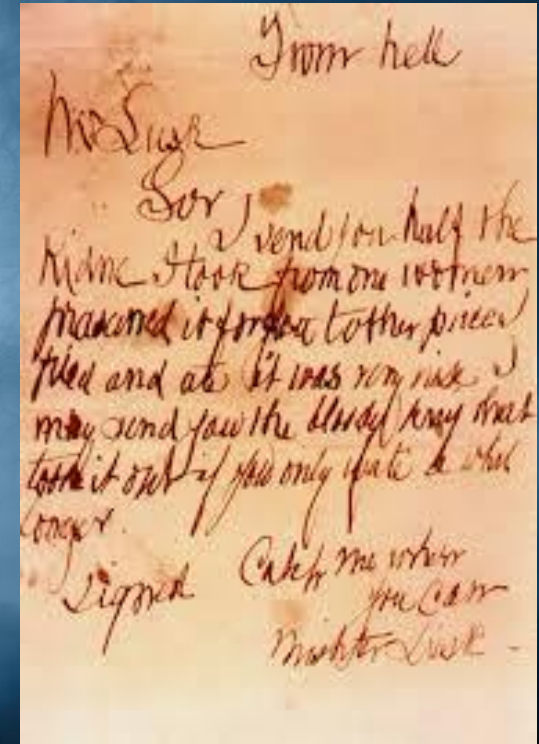 From hell
Mr Lusk
Sor
I send you half the
Kidne I took from one women
prasarved it for you tother piece I
fried and ate it was very nise I
may send you the bloody knif that
took it out if you only wate a whil
longer.
signed Catch me when
you can
Mishter Lusk -